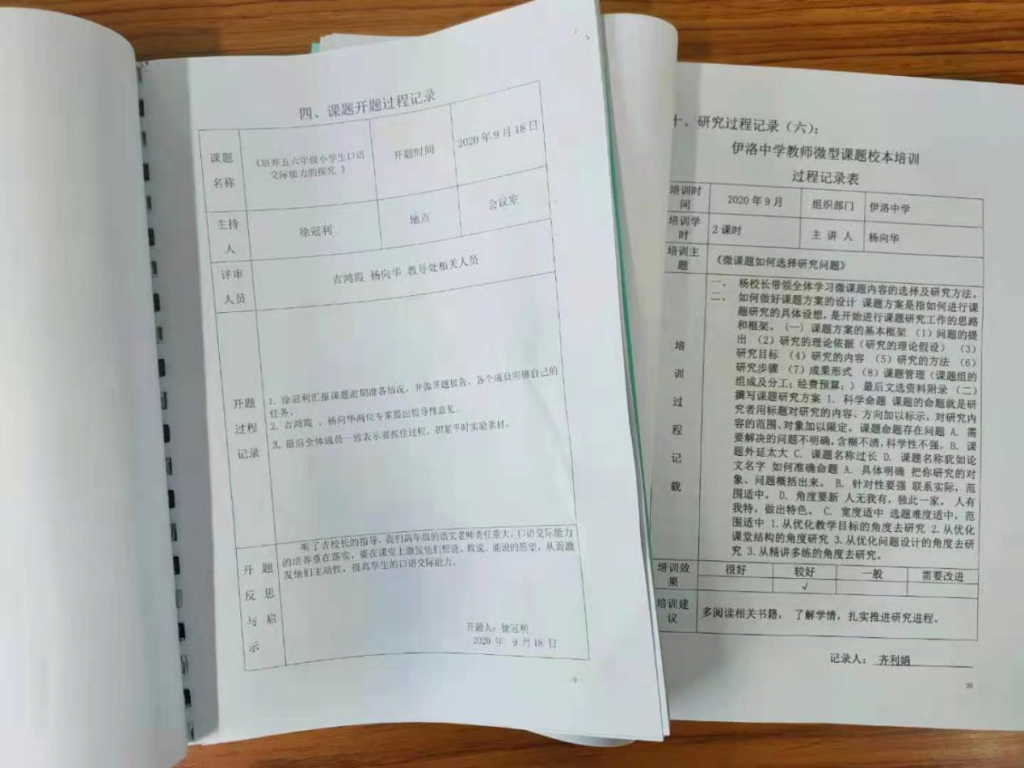 四、课题开题过程记录
课题
名称
《培养五六年级小学生口语
交际能力的探究 》
开题时间
2020年9月18日
主持
人
徐冠利
地点
会议室
评审
人员
吉鸿霞 杨向华 教导处相关人员
开题
过程
记录
1. 徐冠利汇报课题前期准备情况，并做开题报告，各个成员明确自己的
任务。
2. 吉鸿霞 、杨向华两位专家提出指导性意见。
3. 最后全体成员一致表示要抓住过程，积累平时实验素材。
开 题
反 思
与 启
示
听了吉校长的指导，我们高年级的语文老师责任重大，口语交际能力
的培养重在落实，要在课堂上激发他们想说、敢说、能说的愿望，从而激
发他们主动性，提高学生的口语交际能力。
开题人：徐冠利
2020 年 9 月 18 日
十、研究过程记录（六）：
伊洛中学教师微型课题校本培训
过程记录表
培训时
间
2020 年 9 月
组织部门
伊洛中学
培训学
时
2 课时
主 讲 人
杨向华
培训主
题
《微课题如何选择研究问题》
培
训
过
程
记
载
一、 杨校长带领全体学习微课题内容的选择及研究方法。
二、 如何做好课题方案的设计 课题方案是指如何进行课
题研究的具体设想，是开始进行课题研究工作的思路
和框架。（一）课题方案的基本框架 （1）问题的提
出 （2）研究的理论依据（研究的理论假设） （3）
研究目标 （4）研究的内容 （5）研究的方法 （6）
研究步骤 （7）成果形式 （8）课题管理（课题组的
组成及分工；经费预算；） 最后文选资料附录 （二）
撰写课题研究方案 1. 科学命题 课题的命题就是研
究者用标题对研究的内容、方向加以标示，对研究内
容的范围、对象加以限定。课题命题存在问题 A. 需
要解决的问题不明确，含糊不清，科学性不强。B. 课
题外延太大 C. 课题名称过长 D. 课题名称犹如论
文名字 如何准确命题 A. 具体明确 把你研究的对
象、问题概括出来。 B. 针对性要强 联系实际，范
围适中。 D. 角度要新 人无我有，独此一家。 人有
我特，做出特色。 C. 宽度适中 选题难度适中，范
围适中 1.从优化教学目标的角度去研究 2.从优化
课堂结构的角度研究 3.从优化问题设计的角度去研
究 3.从精讲多练的角度去研究。
培训效
果
很好
较好
一般
需要改进
√
培训建
议
多阅读相关书籍， 了解学情，扎实推进研究进程。
记录人： 齐利娟